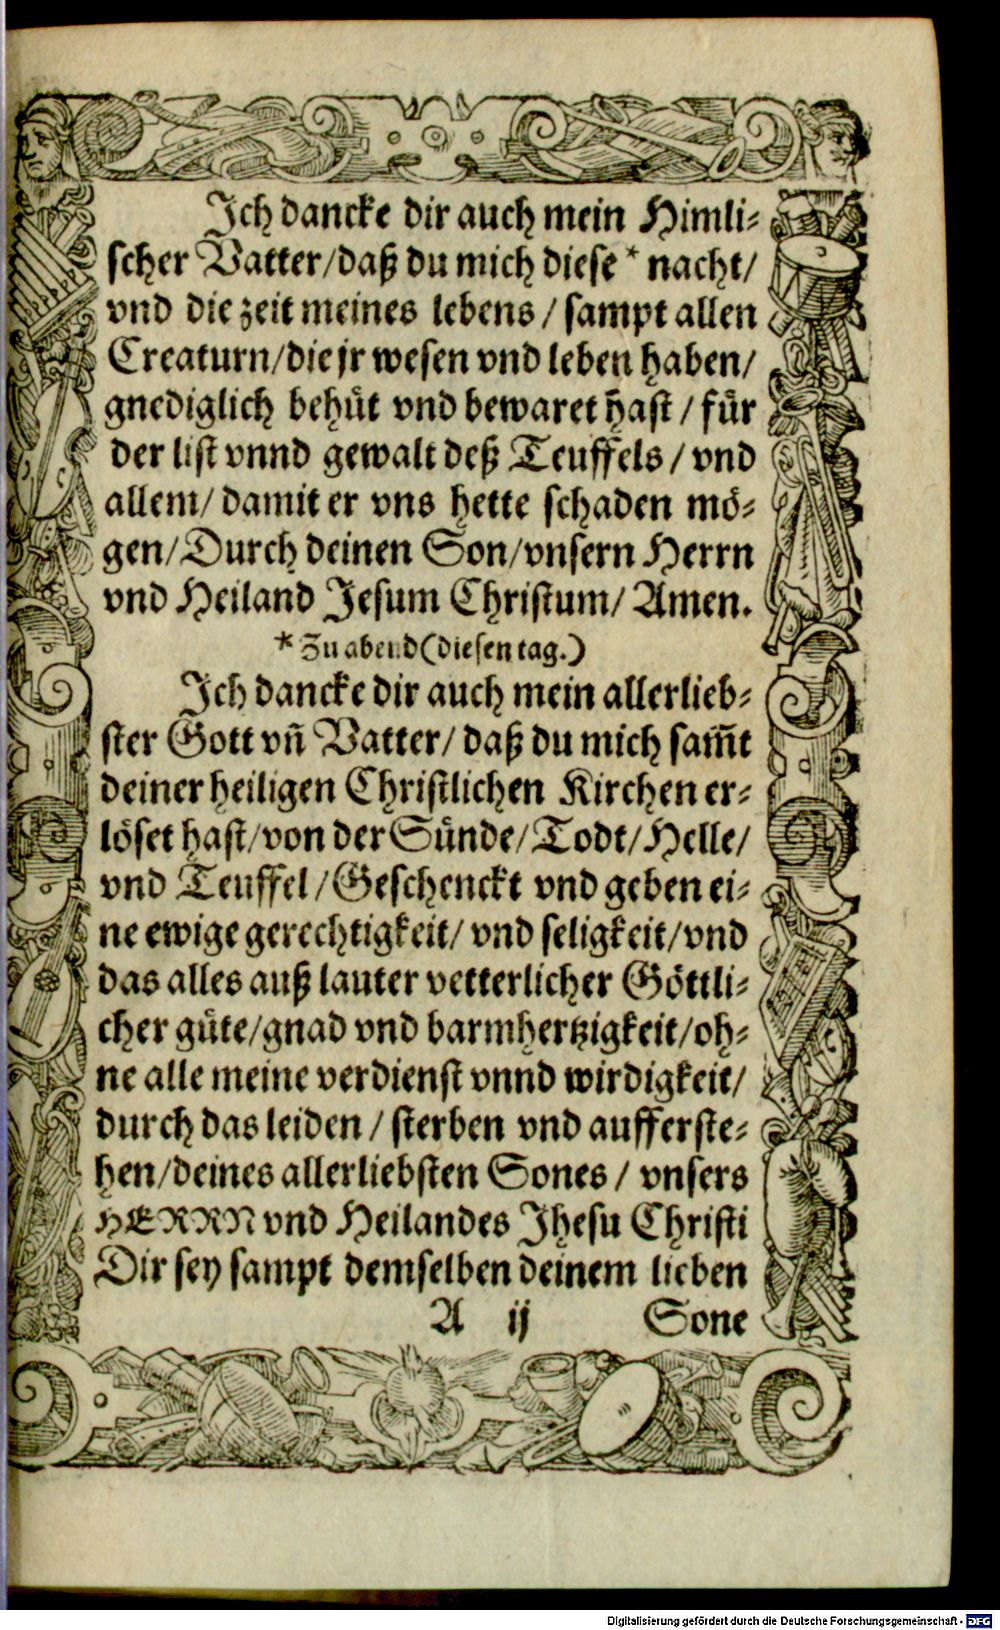 Ich dancke dir auch mein Himli⸗
scher Vatter/daß du mich diese * nacht/
vnd die zeit meines lebens / sampt allen
Creaturn/die jr wesen vnd leben haben/
gnediglich behüt vnd bewaret hast / für
der list vnnd gewalt deß Teuffels / vnd
allem/ damit er vns hette schaden mö⸗
gen/Durch deinen Son/vnsern Herrn
vnd Heiland Jesum Christum/ Amen.
* Zu abend (diesen tag.)
Ich dancke dir auch mein allerlieb⸗
ster Gott vn̄ Vatter/ daß du mich sam̄t
deiner heiligen Christlichen Kirchen er⸗
löset hast/von der Sünde/Todt/Helle/
vnd Teuffel/Geschenckt vnd geben ei⸗
ne ewige gerechtigkeit/ vnd seligkeit/vnd
das alles auß lauter vetterlicher Göttli⸗
cher güte/gnad vnd barmhertzigkeit/oh⸗
ne alle meine verdienst vnnd wirdigkeit/
durch das leiden / sterben vnd aufferste⸗
hen/deines allerliebsten Sones / vnsers
HERRN vnd Heilandes Jhesu Christi
Dir sey sampt demselben deinem lieben
A ij Sone
Digitalisierung gefördert durch die Deutsche Forschungsgemeinschaft - DFG